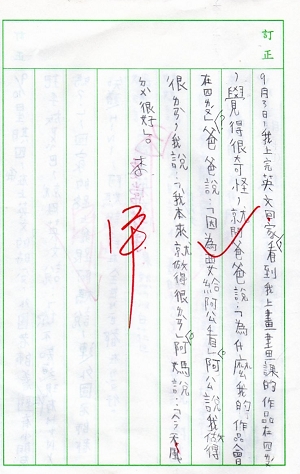 訂正
9月3日,我上完英文回家,看到我上畫畫課的作品在四ㄌㄡˊ
,覺得很奇怪,就問爸爸說:「為什麼我的作品會
在四ㄌㄡˊ」爸爸說:「因為要給阿公看」阿公說我做得
很ㄅㄤˋ,我說:「我本來就做得很ㄅㄤˋ」阿媽說:「今天風
很好。
李